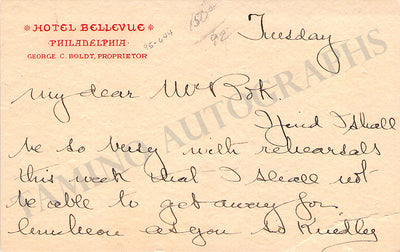 HOTEL BELLEVUE
PHILADELPHIA
GEORGE C. BOLDT, PROPRIETOR
95-604
Tuesday
My dear Mr Bok.
I find I shall
be so busy with rehearsals
this week that I shall not
be able to get away for
luncheon as you so kindly
TAMINO AUTOGRAPHS